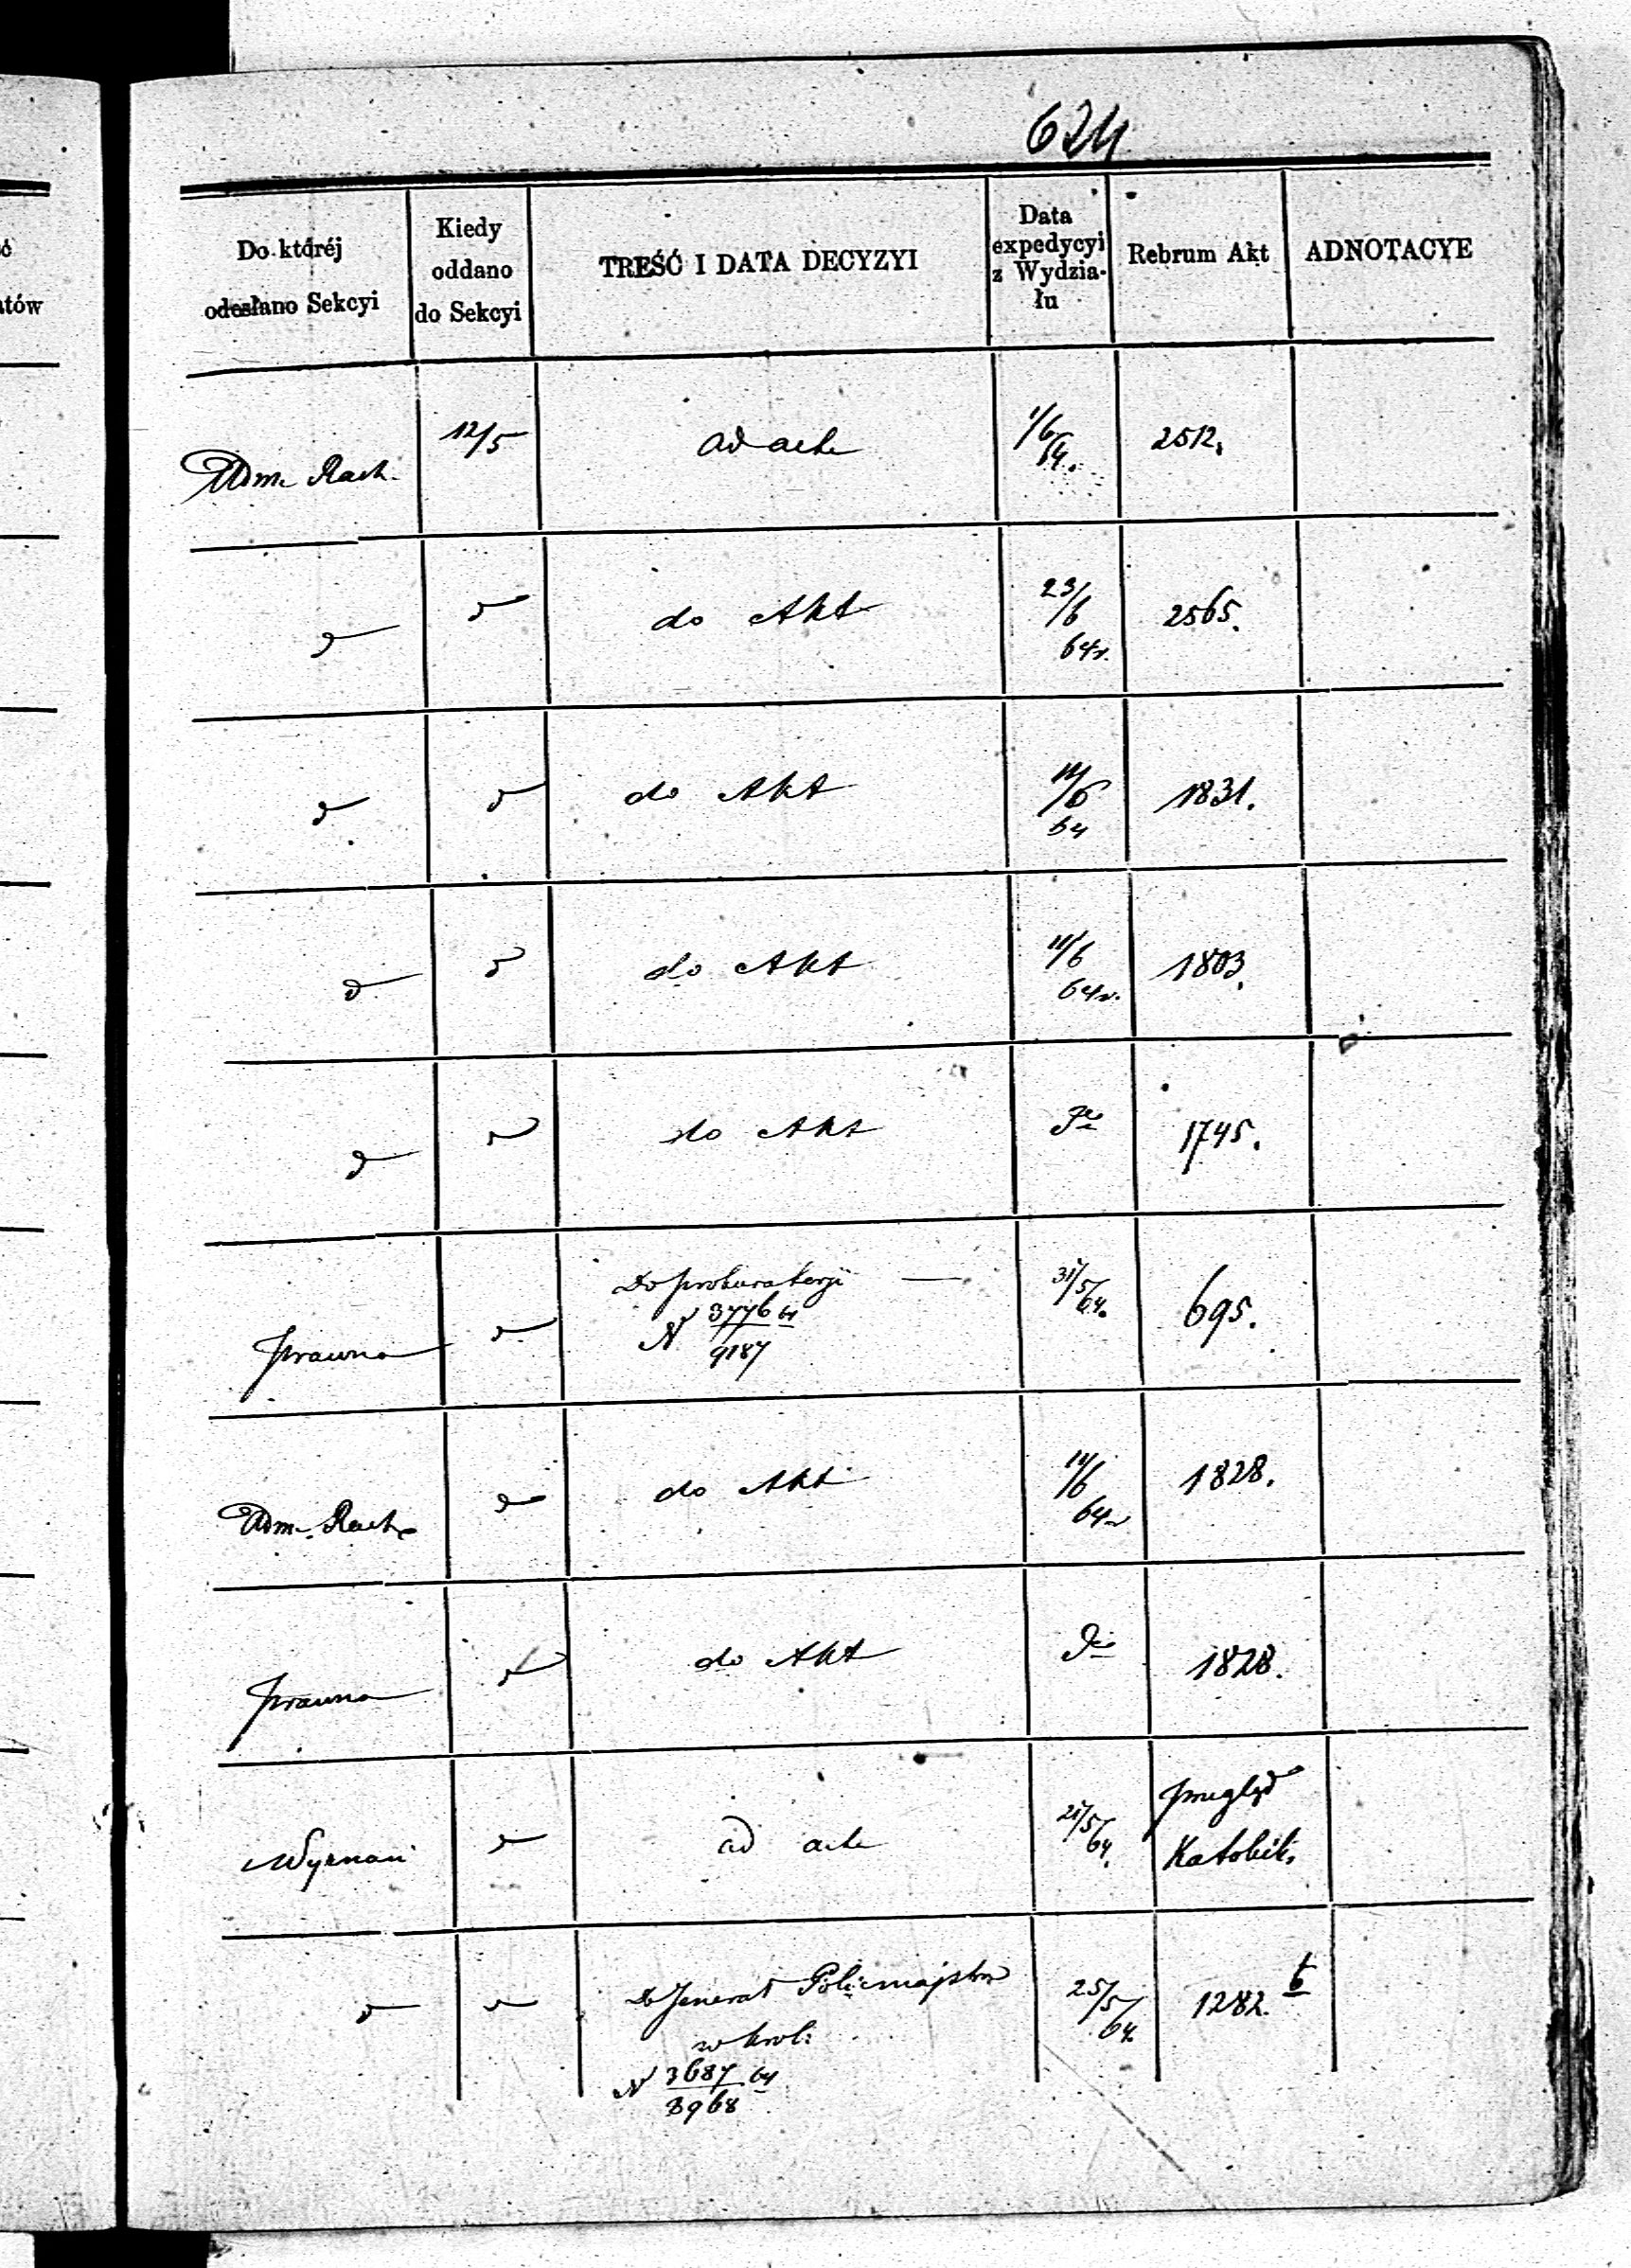 624
ć
ntów
Do któréj
odesłano Sekcyi
Kiedy
oddano
do Sekcyi
TREŚĆ I DATA DECYZYI
Data
expedycyi
z Wydzia-
łu
Rebrum Akt
ADNOTACYE
Adm. Rach. 12/5 ad acta 1/6 64. 2512.
do Akt 23/6 2565.
64 r.
do Akt 1831.
64
do Akt 11/6 1803.
64 r.
do Akt 1745.
Do prokuratoryi — 31/5 64.
Prawna N 3776 64 695.
9187
Adm. Rach. do Akt 1828.
64 r
Prawna do Akt 1828.
Wyznań ad acta 21/5 64. przegląd
Katolik.
Do Jenerał Policmajstra 25/5 64. 1282. b
w król:
N 3687 64
8968